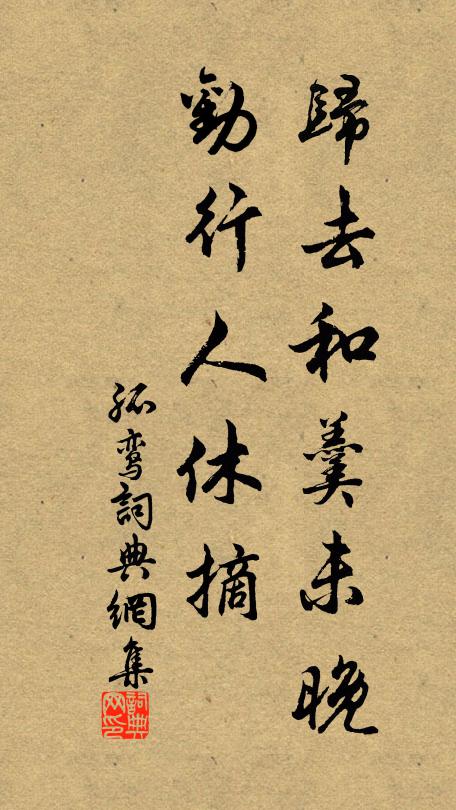 歸去和羹未晚
勸行人休摘
孤鸾詞典網集
詞典
网印